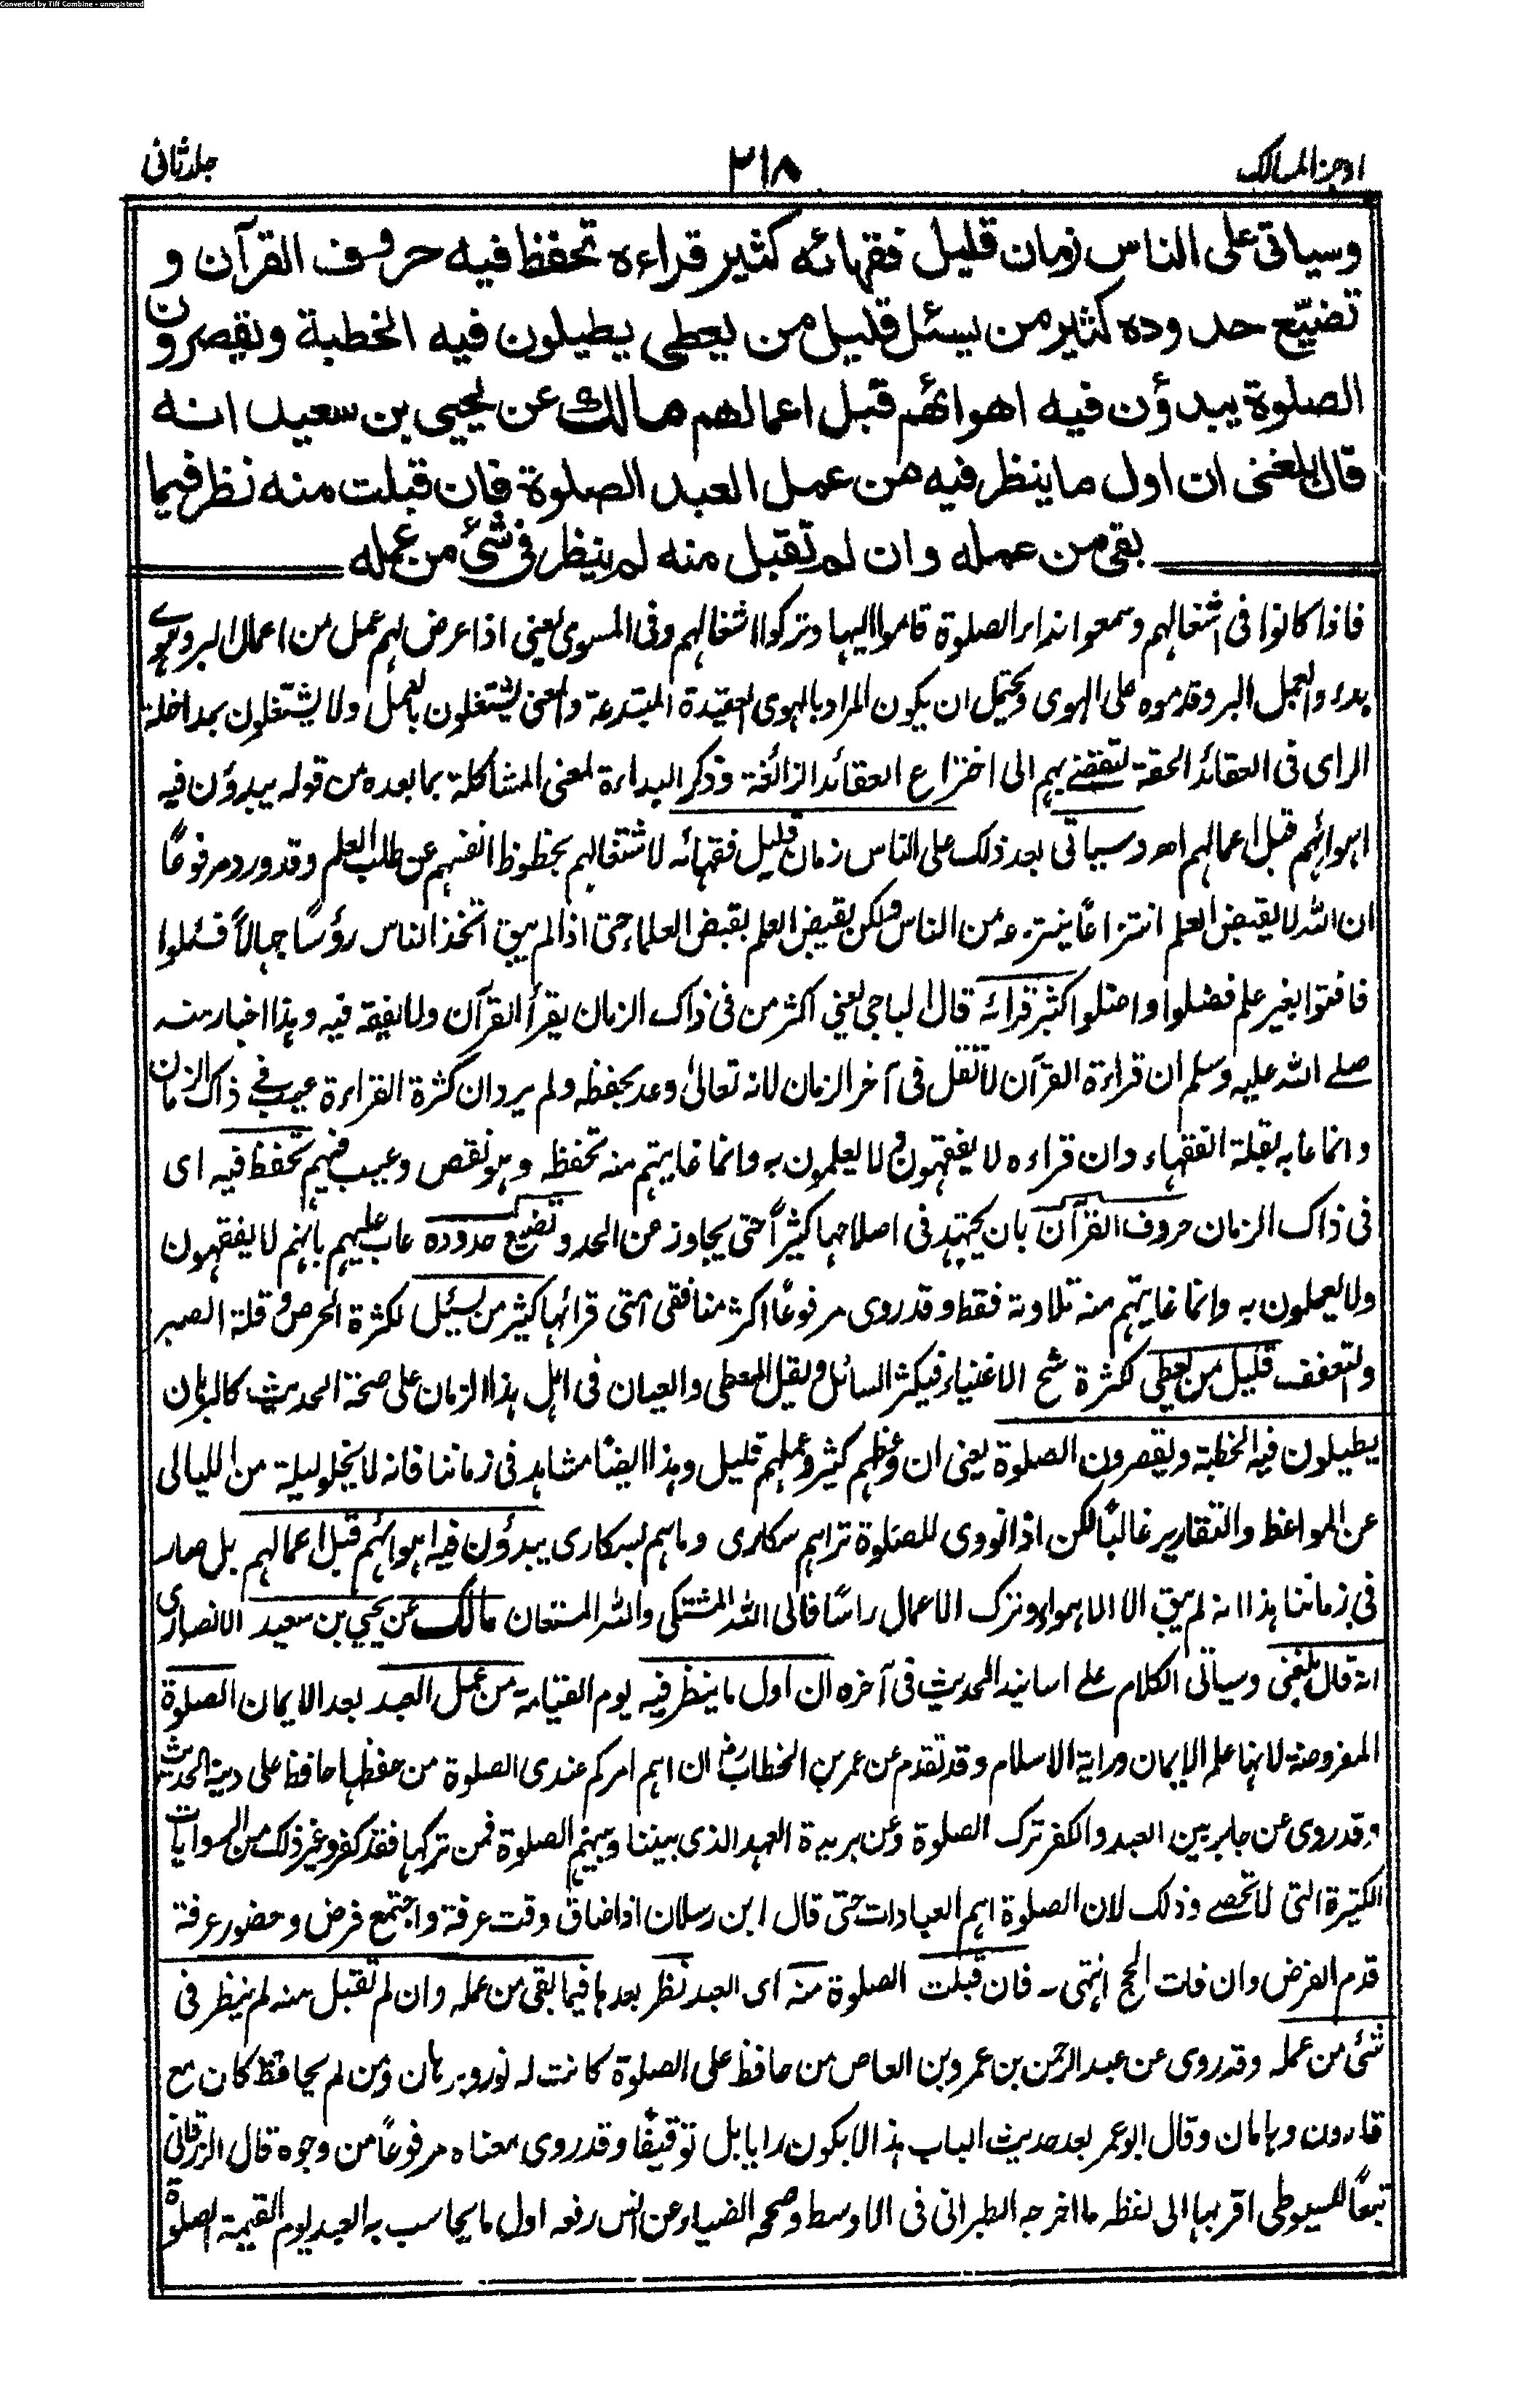 Converted by Tiff Combine - unregistered
اوجز المسالك ٢١٨ جلد ثانی
وسياتى على الناس زمان قليل فقهائه كثير قراءه تحفظ فيه حروف القرآن و
تضيّع حدوده كثير من يسئل قليل من يعطى يطيلون فيه الخطبة ويقصرون
الصلوة يبدؤن فيه اهوائهم قبل اعمالهم مالك عن يحيى بن سعيد انه
قال بلغنى ان اول ما ينظر فيه من عمل العبد الصلوة فان قبلت منه نظر فيما
بقى من عمله وان لم تقبل منه لم ينظر فى شئ من عمله
فاذا كانوا فى اشغالهم وسمعوا نداء الصلوة قاموا اليها وتركوا اشغالهم وفى المسوى يعنى اذا عرض لهم عمل من اعمال البر وهوى
بدءوا بعمل البر وقدموه على الهوى ويحتمل ان يكون المراد بالهوى العقيدة المبتدعة والمعنى يشتغلون بالعمل ولا يشتغلون بمداخلة
الراى فى العقائد الحقة لتفضے بهم الى اختراع العقائد الزائغة وذكر البداءة لمعنى المشاكلة بما بعده من قوله يبدؤن فيه
اهوائهم قبل اعمالهم اھ وسياتى بعد ذلك على الناس زمان قليل فقهائه لاشتغالهم بحظوظ انفسهم عن طلب العلم وقد ورد مرفوعًا
ان الله لا يقبض العلم انتزاعًا ينتزعه من الناس ولكن يقبض العلم بقبض العلماء حتى اذا لم يبق اتخذ الناس رؤسًا جهالاً فسئلوا
فافتوا بغير علم فضلوا واضلوا كثير قرائه قال الباجى يعنى اكثر من فى ذاك الزمان يقرأ القرآن ولا يفقه فيه وهذا اخبار منه
صلے الله عليه وسلم ان قراءة القرآن لا تقل فى آخر الزمان لانه تعالىٰ وعد بحفظه ولم يرد ان كثرة القراءة عيب فے ذاك الزمان
وانما عابه بقلة الفقهاء وان قراءه لا يفقهون ولا يعلمون به وانما غايتهم منه تحفظه وهو نقص وعيب فيهم تحفظ فيه اى
فى ذاك الزمان حروف القرآن بان يجتهد فى اصلاحها كثيراً حتى يجاوز عن الحد وتضيع حدوده عاب عليهم بانهم لا يفقهون
ولا يعملون به وانما غايتهم منه تلاوته فقط وقد روى مرفوعًا اكثر منافقى امتى قرائها كثير من يسئل لكثرة الحرص وقلة الصبر
والتعفف قليل من يعطى لكثرة شح الاغنياء فيكثر السائل ويقل المعطى والعيان فى اهل هذا الزمان على صحة الحديث كالبرهان
يطيلون فيه الخطبة ويقصرون الصلوة يعنى ان وعظهم كثير وعملهم قليل وهذا ايضًا مشاهد فى زماننا فانه لا يخلو ليلة من الليالى
عن المواعظ والتقارير غالبًا لكن اذا نودى للصلوة تراهم سكارى وما هم بسكارى يبدؤن فيه اهوائهم قبل اعمالهم بل صار
فى زماننا هذا انه لم يبق الا الاهواء ونترك الاعمال راسًا فالى الله المشتكى والله المستعان مالك عن يحيى بن سعيد الانصارى
انه قال بلغنى وسياتى الكلام علے اسانيد الحديث فى آخره ان اول ما ينظر فيه يوم القيامة من عمل العبد بعد الايمان الصلوة
المفروضة لانها علم الايمان وراية الاسلام وقد تقدم عن عمر بن الخطاب رض ان اهم امركم عندى الصلوة من حفظها حافظ على دينه الحديث
وقد روى عن جابر بين العبد والكفر ترك الصلوة وعن بريدة العهد الذى بيننا وبينهم الصلوة فمن تركها فقد كفر وغير ذلك من الروايات
الكثيرة التى لا تحصے وذلك لان الصلوة اهم العبادات حتى قال ابن رسلان اذا ضاق وقت عرفة واجتمع فرض وحضور عرفة
قدم الفرض وان فات الحج انتهى ۔ فان قبلت الصلوة منه اى العبد نظر بعدها فيما بقى من عمله وان لم تقبل منه لم ينظر فى
شئى من عمله وقد روى عن عبد الرحمن بن عمرو بن العاص من حافظ على الصلوة كانت له نورو برهان ومن لم يحافظ كان مع
قارون وهامان وقال ابو عمر بعد حديث الباب هذا لا يكون رايا بل توقيفًا وقد روى بمعناه مرفوعًا من وجوه قال الزرقانى
تبعًا للسيوطى اقربها الى لفظه ما اخرجه الطبرانى فى الاوسط وصححه الضياء عن انس رفعه اول ما يحاسب به العبد يوم القيمة الصلوة